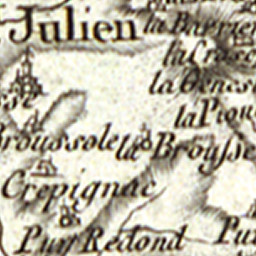 Julien
la Barrier
la Crose
la Genes
la Piou
Broussole
la Broysse
Crepignac
Puy Redond
Pu